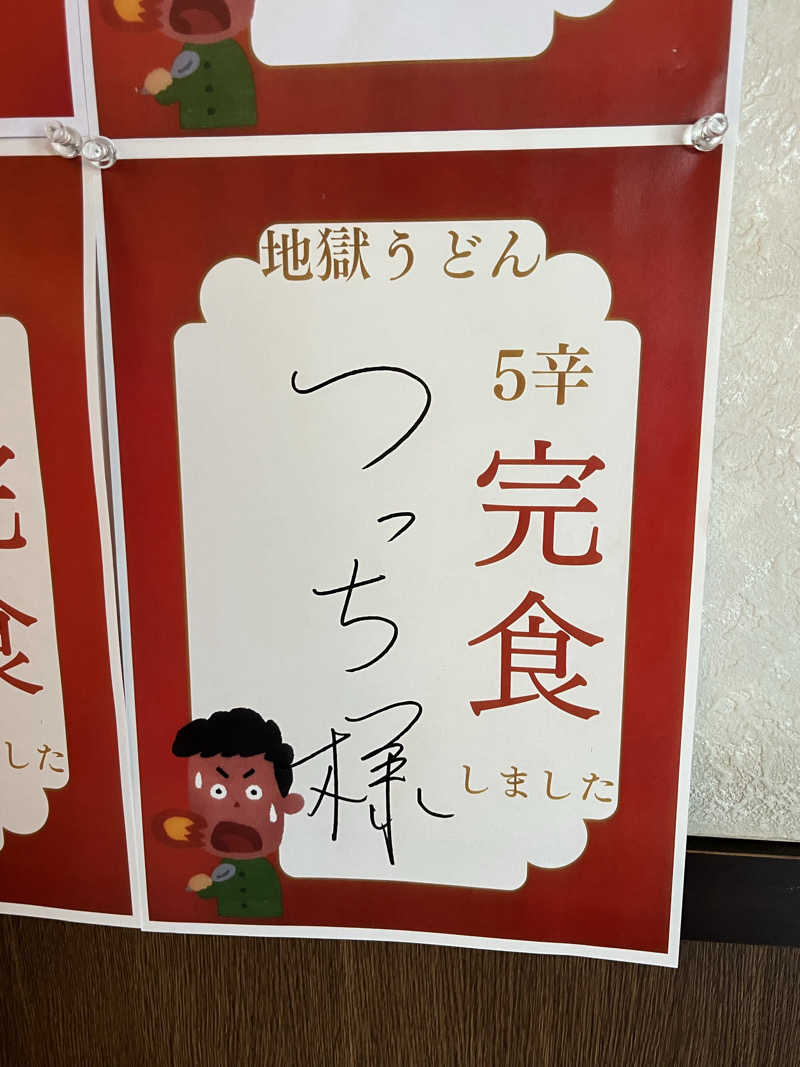 地獄うどん
5辛
完食
しました
つっち様
完
食
した